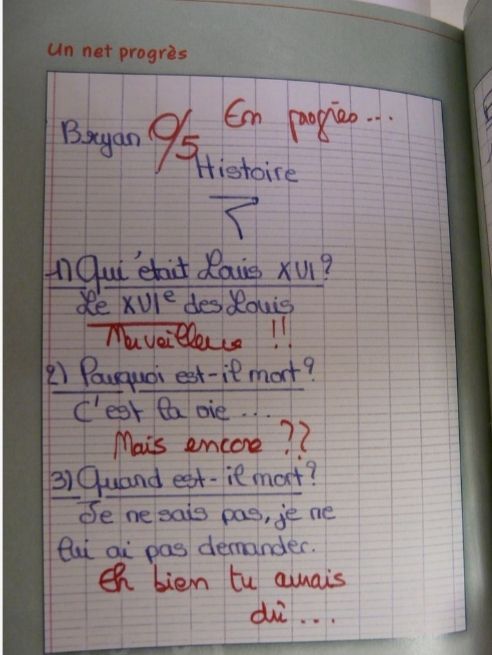 Un net progrès
En progrès...
Bryan 0/5
Histoire
1) Qui était Louis XVI?
Le XVIe des Louis
Merveilleux !!
2) Pourquoi est-il mort?
C'est la vie...
Mais encore ??
3) Quand est-il mort?
Je ne sais pas, je ne
lui ai pas demander.
Eh bien tu aurais
dû...